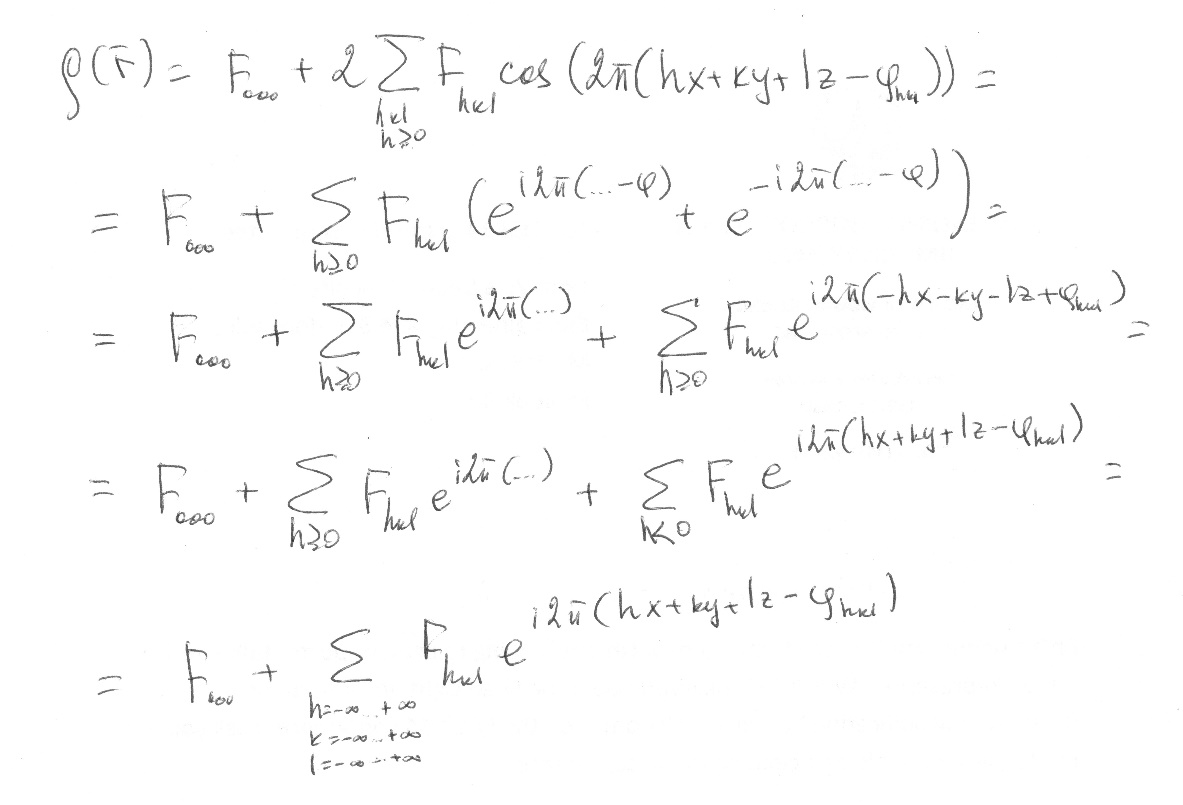 ρ(r̄) = F₀₀₀ + 2 ∑_{hkl h≥0} F_{hkl} cos (2π(hx+ky+lz−φ_{hkl})) =
= F₀₀₀ + ∑_{h≥0} F_{hkl} (e^{i2π(...−φ)} + e^{−i2π(...−φ)}) =
= F₀₀₀ + ∑_{h≥0} F_{hkl} e^{i2π(...)} + ∑_{h≥0} F_{hkl} e^{i2π(−hx−ky−lz+φ_{hkl})} =
= F₀₀₀ + ∑_{h≥0} F_{hkl} e^{i2π(...)} + ∑_{h<0} F_{hkl} e^{i2π(hx+ky+lz−φ_{hkl})} =
= F₀₀₀ + ∑_{h=−∞...+∞ k=−∞...+∞ l=−∞...+∞} F_{hkl} e^{i2π(hx+ky+lz−φ_{hkl})}